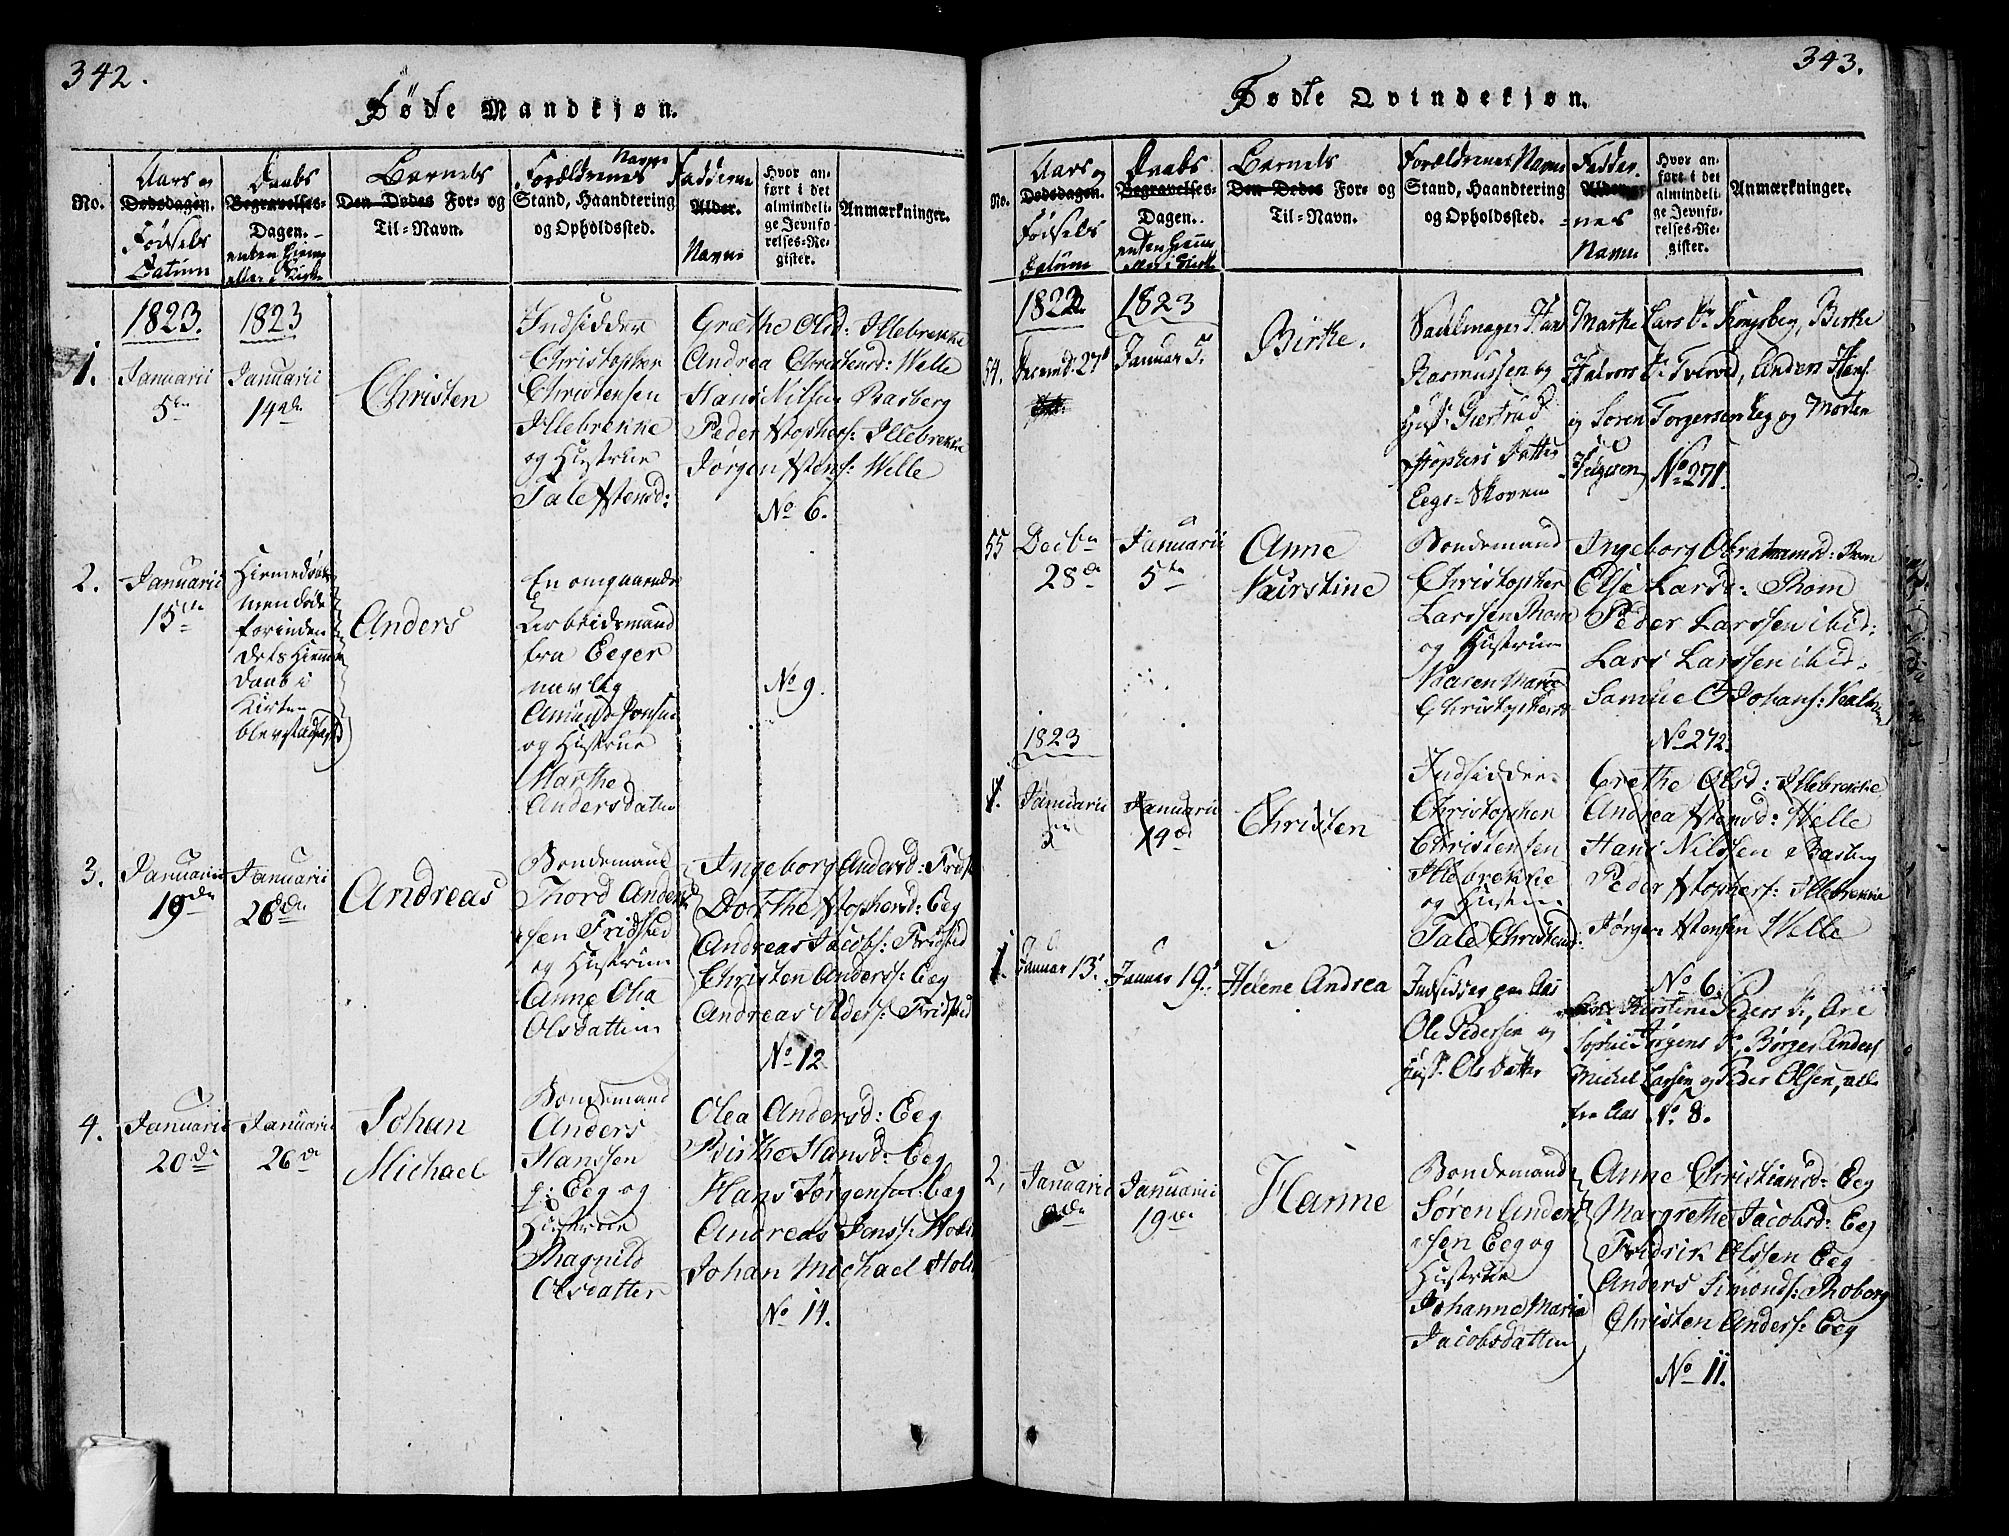 342.
Føde Mandkjøn.
No.
Aars og
Dødsdagen.
Fødsels
Datum
Daabs
Begravelses-
Dagen.
enten Hieme
eller i Kirke
Barnets
Den Dødes For- og
Til-Navn.
Forældrenes Navne
Stand, Haandtering
og Opholdssted.
Faddernes
Alder.
Navne
Hvor an-
ført i det
almindeli-
ge Jevnfø-
relses-Re-
gister.
Anmærkninger.
1823.
1823
1.
Januarii
5te
Januarii
14de
Christen
Indsidder
Christopher
Christensen
Illebrekke
og Hustrue
Tale Xstensd:
Græthe Olsd: Illebrekke
Andrea Christensd: Welle
Hans Nilsen Basberg
Peder Xstophers: Illebrekke
Jørgen Xstens: Welle
No 6.
2.
Januarii
15de
Hiemedøbt
men døde
forinden
dets Hieme
Daab i
Kirken
blev stadfæst
Anders
En omgaaende
Arbeidsmand
fra Eeger
navnlig
Amund Jonsen
og Hustrue
Marthe
Andersdatter
No 9.
3.
Januarii
19de
Januarii
26de
Andreas
Bondemand
Thord Anders
sen Fridsted
og Hustrue
Anne Olia
Olsdatter
Ingeborg Andersd: Fridst
Dorthe Xstophersd: Eeg
Andreas Jacobs: Fridsted
Christen Anderss: Eeg
Andreas Peders: Fridsted
No 12
4.
Januarii
20de
Januarii
26de
Johan
Michael
Bondemand
Anders
Hanssen
Eeg og
Hustrue
Ragnild
Olsdatter
Olea Andersd: Eeg
Birthe Hansd: Eeg
Hans Jørgensen Eeg
Andreas Jenss: Holm
Johan Michael Holm
No 14.
343.
Fødte Qvindekjøn.
No.
Aars og
Dødsdagen.
Fødsels
Datum
Daabs
Begravelses-
Dagen.
enten Hieme
eller i Kirke
Barnets
Den Dødes For- og
Til-Navn.
Forældrenes Navne
Stand, Haandtering
og Opholdssted.
Fadder-
Alder.
nes
Navne
Hvor an-
ført i det
almindeli-
ge Jevnfø-
relses-Re-
gister.
Anmærkninger.
1822
1823
54.
Decemb: 27
Januar 5.
Birthe.
Sadelmager Hans
Rasmussen og
Hust: Giertrud
Xstophers Datter
Eegs-Skoven
Marthe Lars Dr Kongsberg, Birthe
Halvors Dr Tveved, Anders Hans.
og Søren Torgersen Eeg og Morten
No 271.
55
Decbr
28de
Januarii
5te
Anne
Kirstine
Bondemand
Christopher
Larssen Rom
og Hustrue
Karen Marie
Christophersd
Ingeborg Abrahamsd: Rom
Else Larsd: Rom
Peder Larssen ibid:
Lars Larssen ibid.
Samuel Johans:
No 272.
1823
1.
Januarii
Januarii
19de
Christen
Indsidder
Christopher
Christensen
Illebrekke
og Hustrue
Tale Christensd:
Grethe Olsd: Illebrekke
Andrea Xstensd: Welle
Hans Nilssen Basberg
Peder Xstophers: Illebrekke
Jørgen Xstensen Welle
No 6.
1.
Januar 13.
Januar 19.
Helene Andrea
Indsidder paa Aas
Ole Pedersen og
Hust: Ols Datter
Kirstine Peders Dr, Ane
Sophie Jørgens Dr, Børger Anders
Michel Larsen og Peder Olsen, alle
fra Aas No 8.
2,
Januarii
Januarii
19de
Hanne
Bondemand
Søren Anders
sen Eeg og
Hustrue
Johanne Maria
Jacobsdatter
Anne Christiansd: Eeg
Margrethe Jacobsd: Eeg
Fridrik Olssen Eeg
Anders Simonds: Roberg
Christen Anderss: Eeg
No 11.